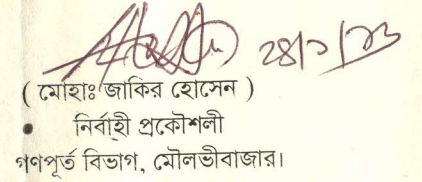 ২৪/১/২৩
( মোহাঃ জাকির হোসেন )
নির্বাহী প্রকৌশলী
গণপূর্ত বিভাগ, মৌলভীবাজার।